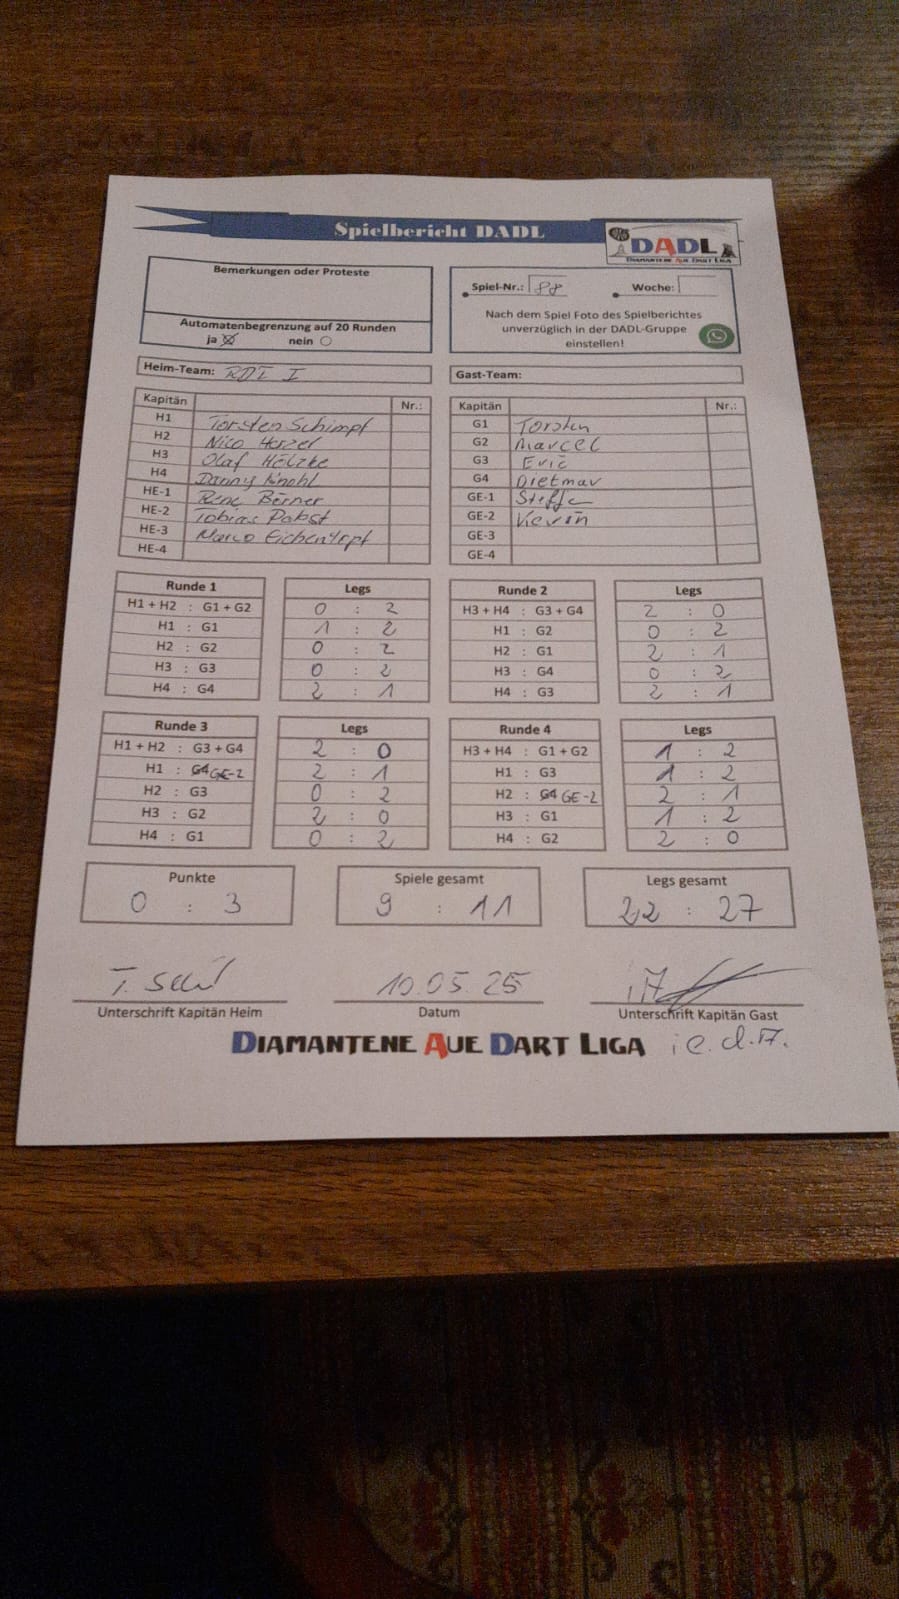 Spielbericht DADL
DADL
DIAMANTENE AUE DART LIGA
Bemerkungen oder Proteste
Automatenbegrenzung auf 20 Runden
ja nein
Spiel-Nr.: 88 Woche:
Nach dem Spiel Foto des Spielberichtes
unverzüglich in der DADL-Gruppe
einstellen!
Heim-Team: RDL I
Gast-Team:
Kapitän Nr.:
H1 Torsten Schimpf
H2 Nico
H3 Olaf Hölzke
H4 Danny
HE-1 Rene Börner
HE-2 Tobias Pabst
HE-3 Marco
HE-4
Kapitän Nr.:
G1 Torsten
G2 Marcel
G3 Eric
G4 Dietmar
GE-1 Steffen
GE-2 Kevin
GE-3
GE-4
Runde 1 Legs
H1 + H2 : G1 + G2 0 : 2
H1 : G1 1 : 2
H2 : G2 0 : 2
H3 : G3 0 : 2
H4 : G4 2 : 1
Runde 2 Legs
H3 + H4 : G3 + G4 2 : 0
H1 : G2 0 : 2
H2 : G1 2 : 1
H3 : G4 0 : 2
H4 : G3 2 : 1
Runde 3 Legs
H1 + H2 : G3 + G4 2 : 0
H1 : G4 GE-2 2 : 1
H2 : G3 0 : 2
H3 : G2 2 : 0
H4 : G1 0 : 2
Runde 4 Legs
H3 + H4 : G1 + G2 1 : 2
H1 : G3 1 : 2
H2 : G4 GE-2 2 : 1
H3 : G1 1 : 2
H4 : G2 2 : 0
Punkte
0 : 3
Spiele gesamt
9 : 11
Legs gesamt
22 : 27
10.05.25
Unterschrift Kapitän Heim
Datum
Unterschrift Kapitän Gast
DIAMANTENE AUE DART LIGA